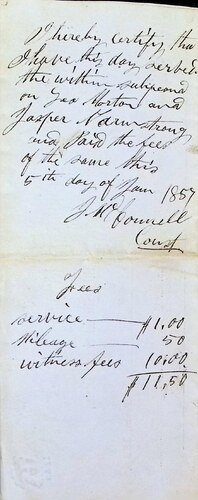 I hereby certify that
I have this day served
the within subpoena
on Jas Norton and
Jasper N Armstrong
and paid the fees
of the same this
5th day of Jan 1857
J. McConnell
Const
Fees
service — $1.00
Mileage — 50
witness fees 10.00
$11,50